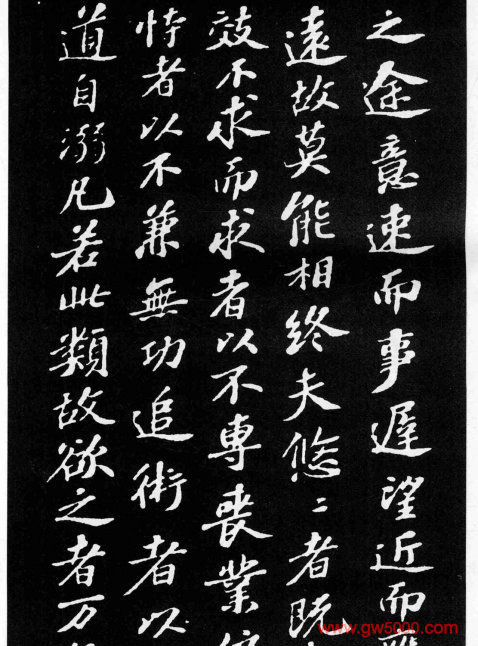 之途意速而事遲望近而
遠故莫能相終夫悠〻者既
效不求而求者以不專喪業
恃者以不兼無功追術者以
道自溺凡若此類故欲之者万
www.gw5000.com